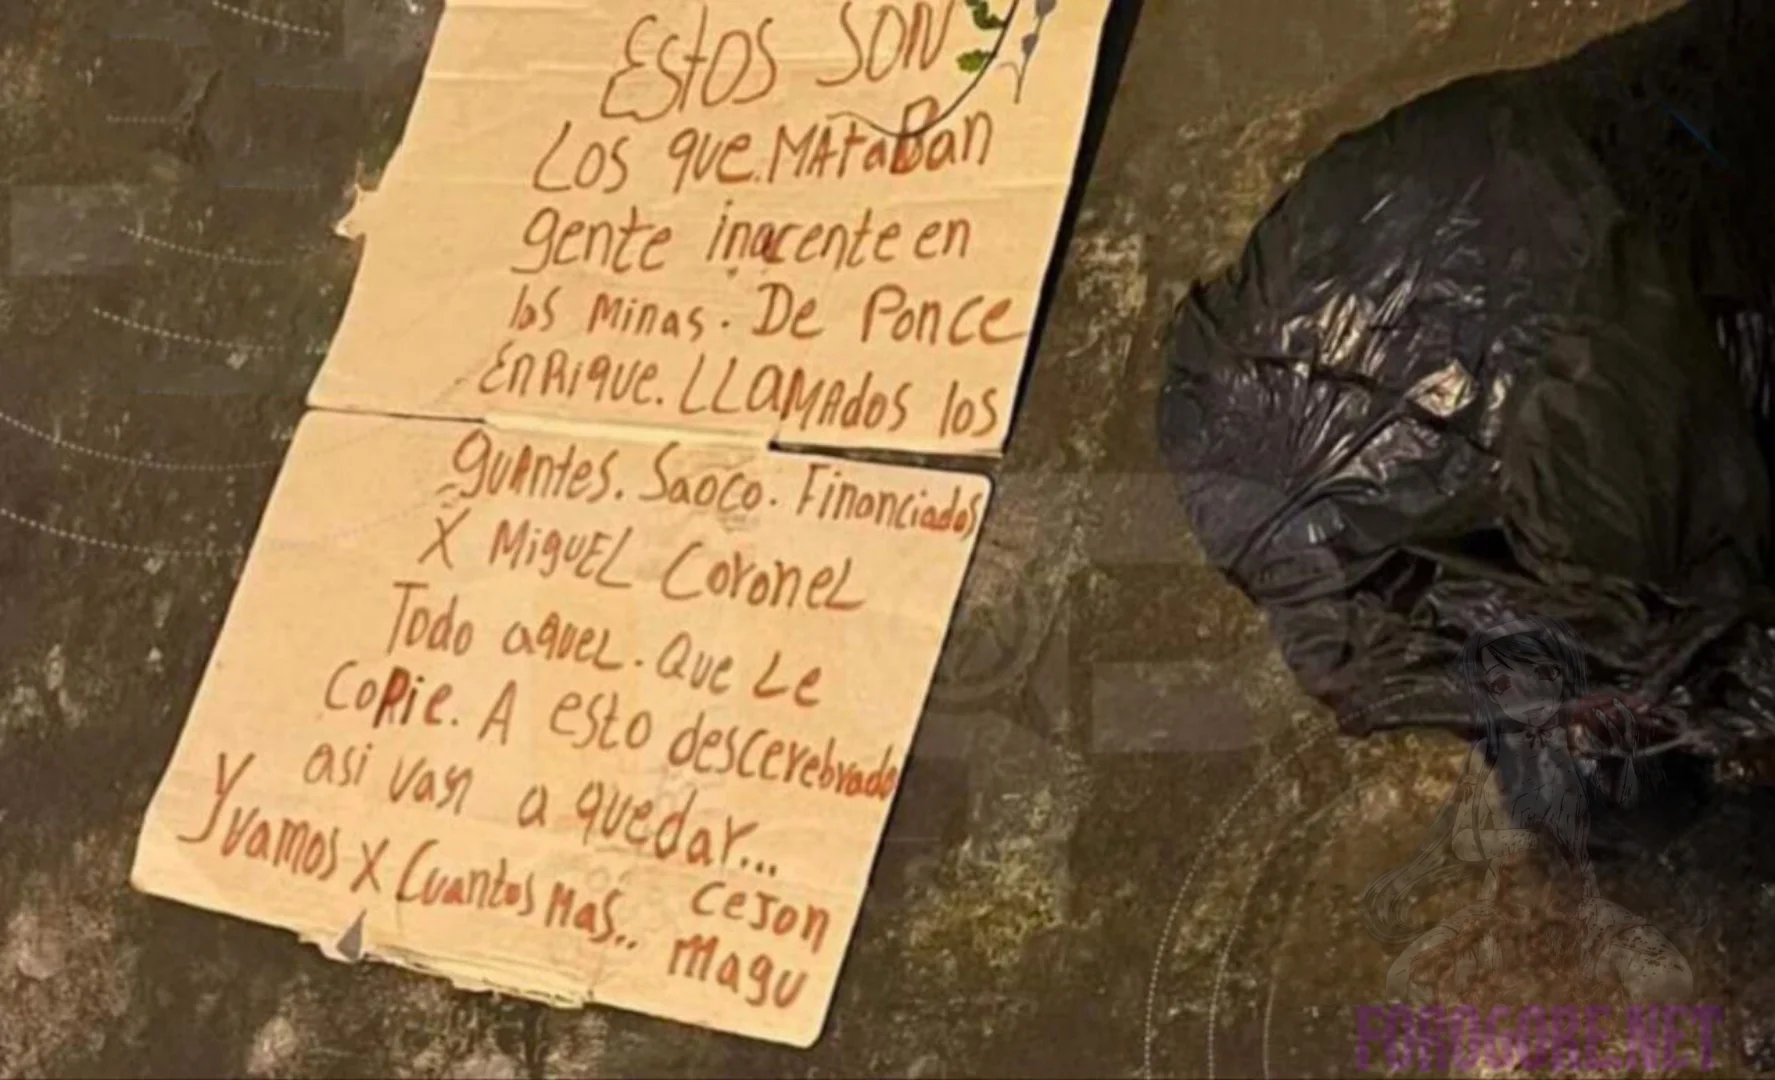 EStOS SON
Los que. MAtaBan
gente inocente en
las minas. De Ponce
EnRique. LLAMAdos los
guantes. Saoco. Financiados
X MiguEL CoroneL
Todo aqueL. Que Le
CoPie. A esto descerebrado
asi van a quedar...
Y vamos X Cuantos Mas..
CeJon
Magu
FOROGORE.NET